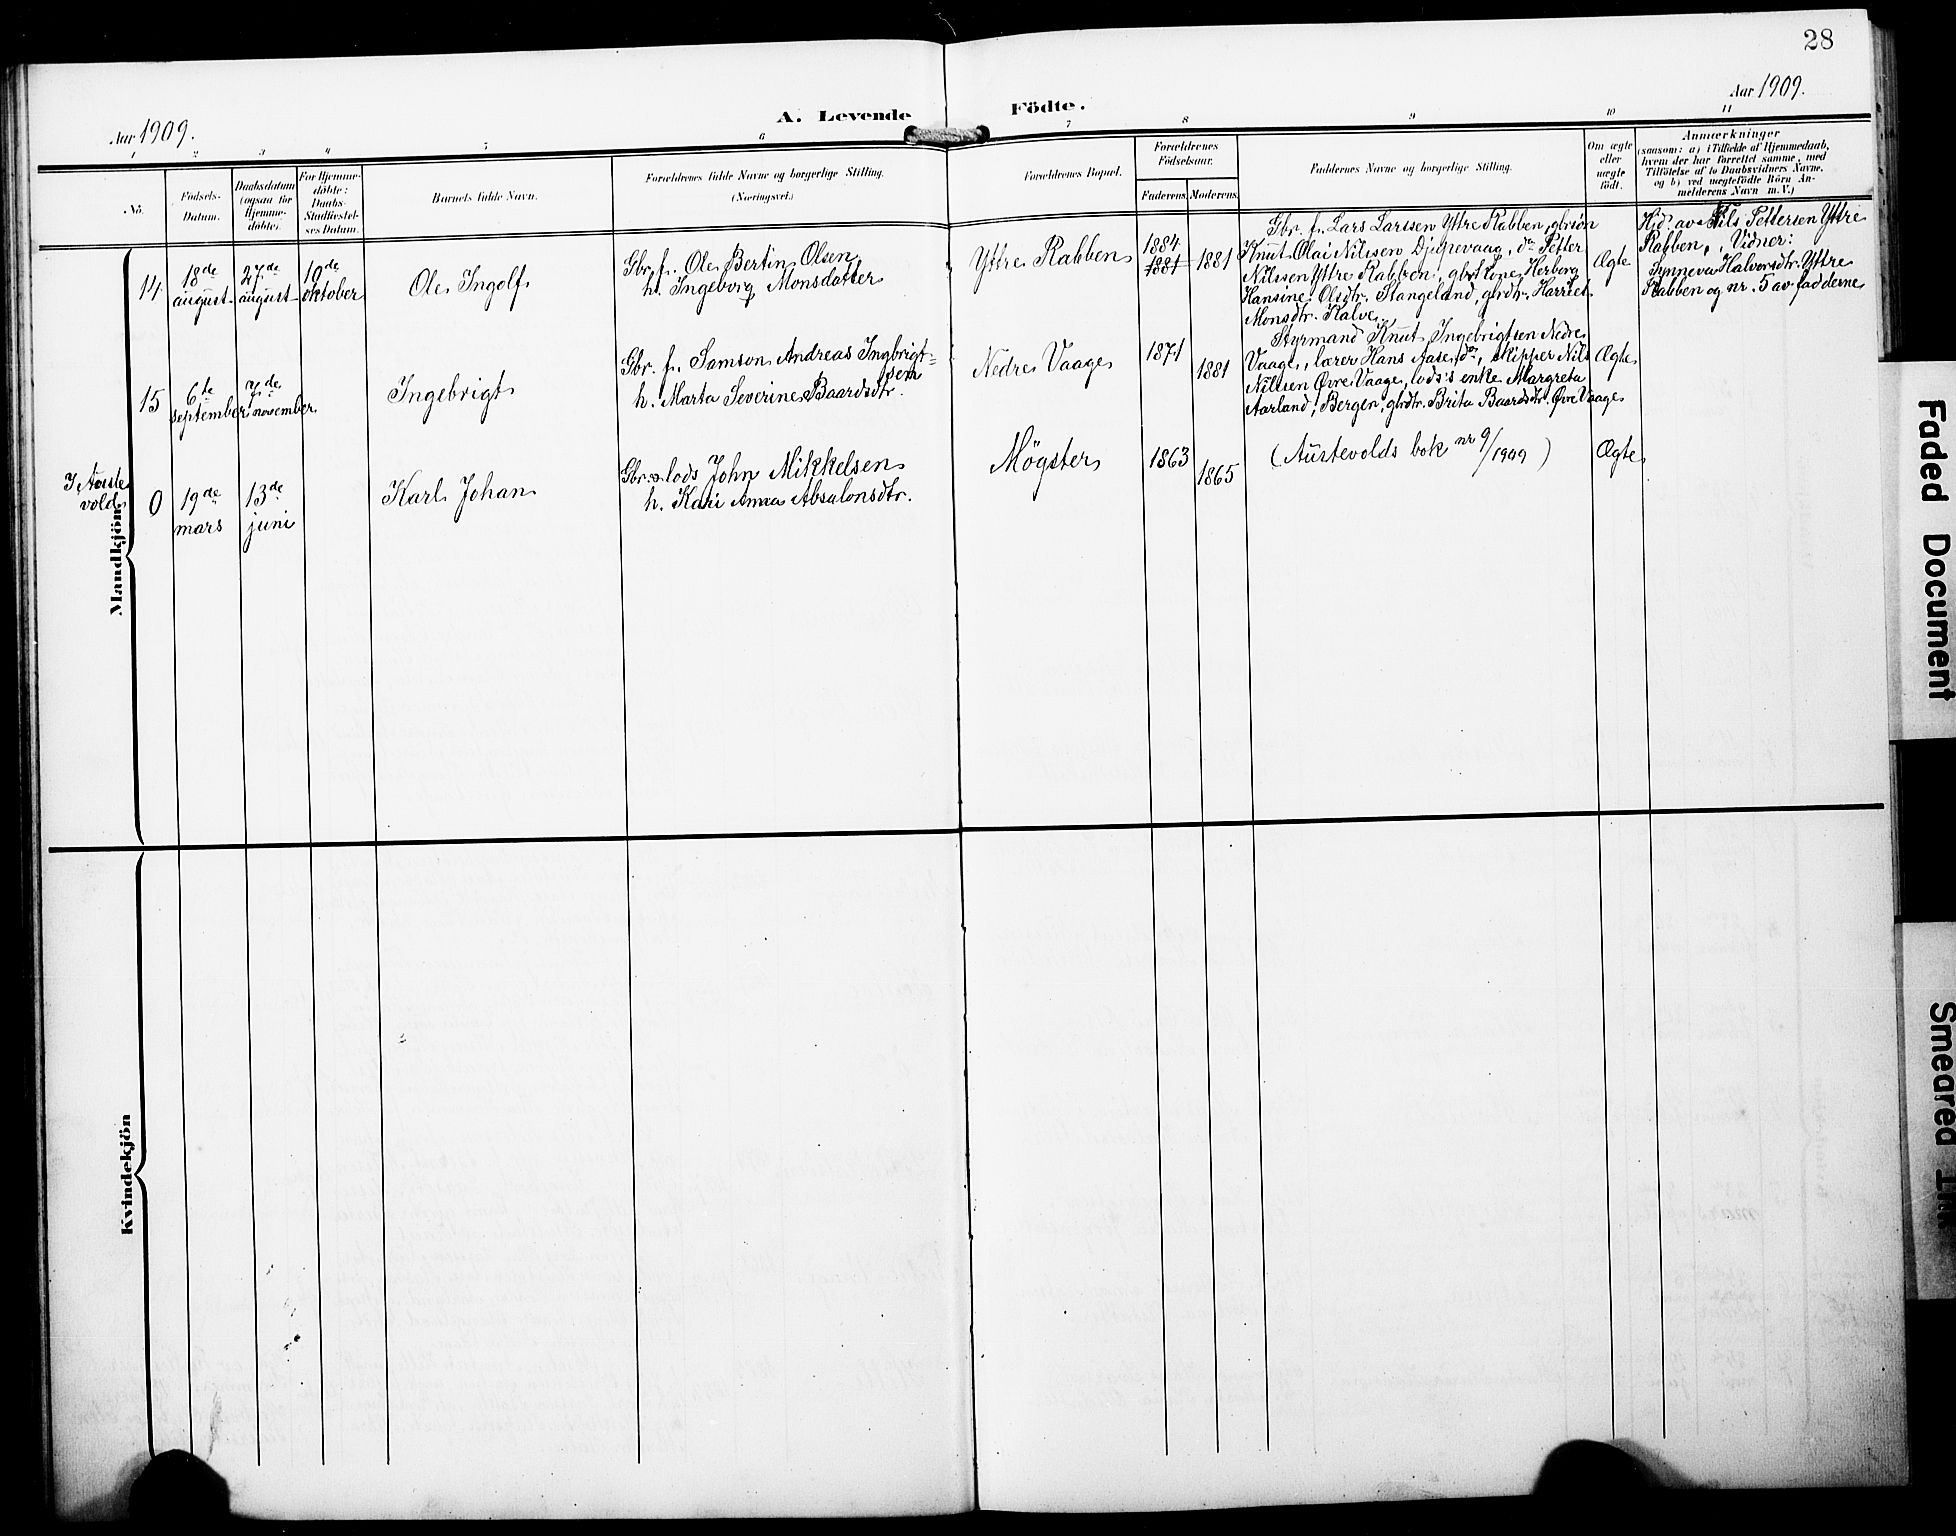 28
Aar 1909.
A. Levende Födte.
Aar 1909.
1 2 3 4 5 6 7 8 9 10 11
No.
Födsels-
Datum.
Daabsdatum
(ogsaa för
Hjemme-
döbte).
For Hjemme-
döbte:
Daabs-
Stadfæstel-
ses Datum.
Barnets fulde Navn.
Forældrenes fulde Navne og borgerlige Stilling.
(Næringsvei.)
Forældrenes Bopæl.
Forældrenes
Födselsaar.
Faderens. Moderens.
Faddernes Navne og borgerlige Stilling.
Om ægte
eller
uægte
födt.
Anmærkninger
(saasom: a) i Tilfælde af Hjemmedaab,
hvem der har forrettet samme, med
Tilföielse af to Daabsvidners Navne,
og b) ved uægtefödte Börn An-
melderens Navn m. V.)
Mandkjön
14
18de
august
27de
august
10de
oktober
Ole Ingolf
Gbr. f. Ole Bertin Olsen,
h. Ingeborg Monsdatter
Yttre Rabben
1884
1881
1881
Gbr. f. Lars Larssen Yttre Rabben, gbrsön
Knut Olai Nilssen Djupevaag, do Petter
Nilssen Yttre Rabben, gbrkone Herborg
Hansine Olsdtr. Stangeland, gbrdtr. Harriet
Monsdtr. Kalve.
Ægte
Hjd. av Nils Pettersen Yttre
Rabben, Vidner:
Synneva Halvorsdtr. Yttre
Rabben og nr. 5 av fadderne
15
6te
september
7de
november
Ingebrigt
Gbr. f. Samson Andreas Ingbrigt=
sen
h. Marta Severine Baardsdtr.
Nedre Vaage
1871
1881
Styrmand Knut Ingebrigtsen Nedre
Vaage, lærer Hans Aase, do, skipper Nils
Nilssen Øvre Vaage, lods's enke Margreta
Aarland, Bergen, gbrdtr. Brita Baardsdtr. Øvre Vaage
Ægte
I Auste
vold
0
19de
mars
13de
juni
Karl Johan
Gbr. & lods John Mikkelsen
h. Kari Anna Absalonsdtr.
Møgster
1863
1865
(Austevolds bok nr 9/1909)
Ægte
Kvindekjön
Faded Document
Smeared Ink